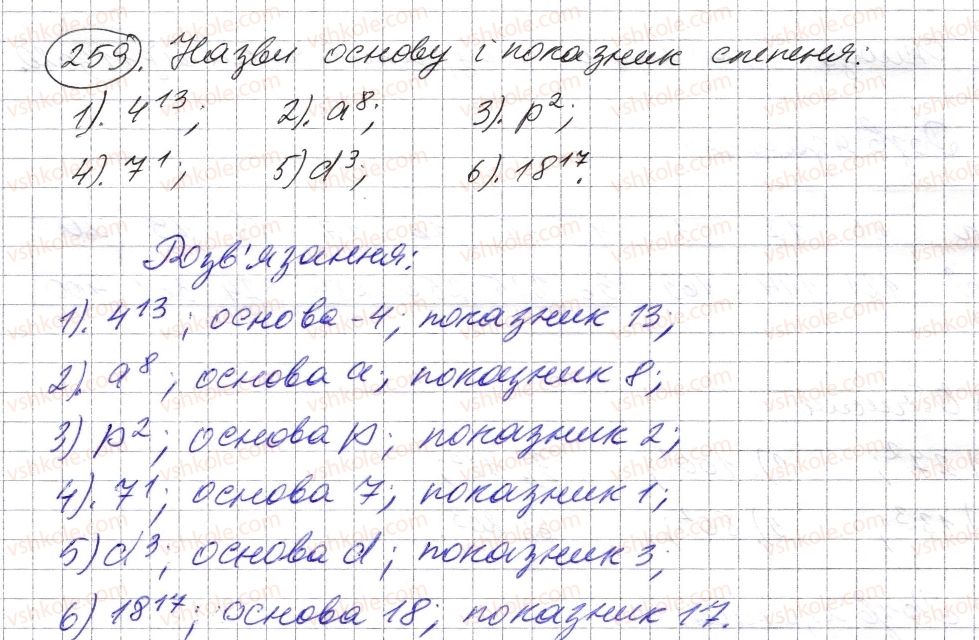 259. Назви основу і показник степеня:
1). 4¹³; 2). a⁸; 3). p²;
4). 7¹; 5) d³; 6). 18¹⁷.
Розв'язання:
1). 4¹³; основа - 4; показник 13;
2). a⁸; основа a; показник 8;
3) p²; основа p; показник 2;
4). 7¹; основа 7; показник 1;
5) d³; основа d; показник 3;
6) 18¹⁷; основа 18; показник 17.